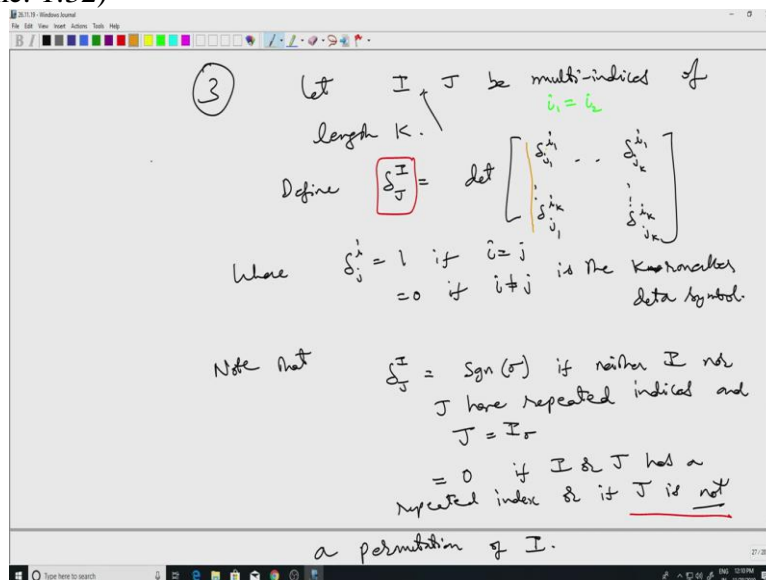 ne: 1:32)
26.11.19 - Windows Journal
File Edit View Insert Actions Tools Help
B I
3 Let I, J be multi-indices of
i₁ = i₂
length K.
Define δ^I_J = det [ δ^{i₁}_{j₁} . . δ^{i₁}_{j_k}
δ^{i_k}_{j₁} δ^{i_k}_{j_k} ]
Where δ^i_j = 1 if i = j
= 0 if i ≠ j is the Kronoecker
deta symbol.
Note that δ^I_J = Sgn (σ) if neither I nor
J have repeated indices and
J = I_σ
= 0 if I or J has a
repeated index or if J is not
a permutation of I.
27/28
Type here to search
ENG 12:10 PM